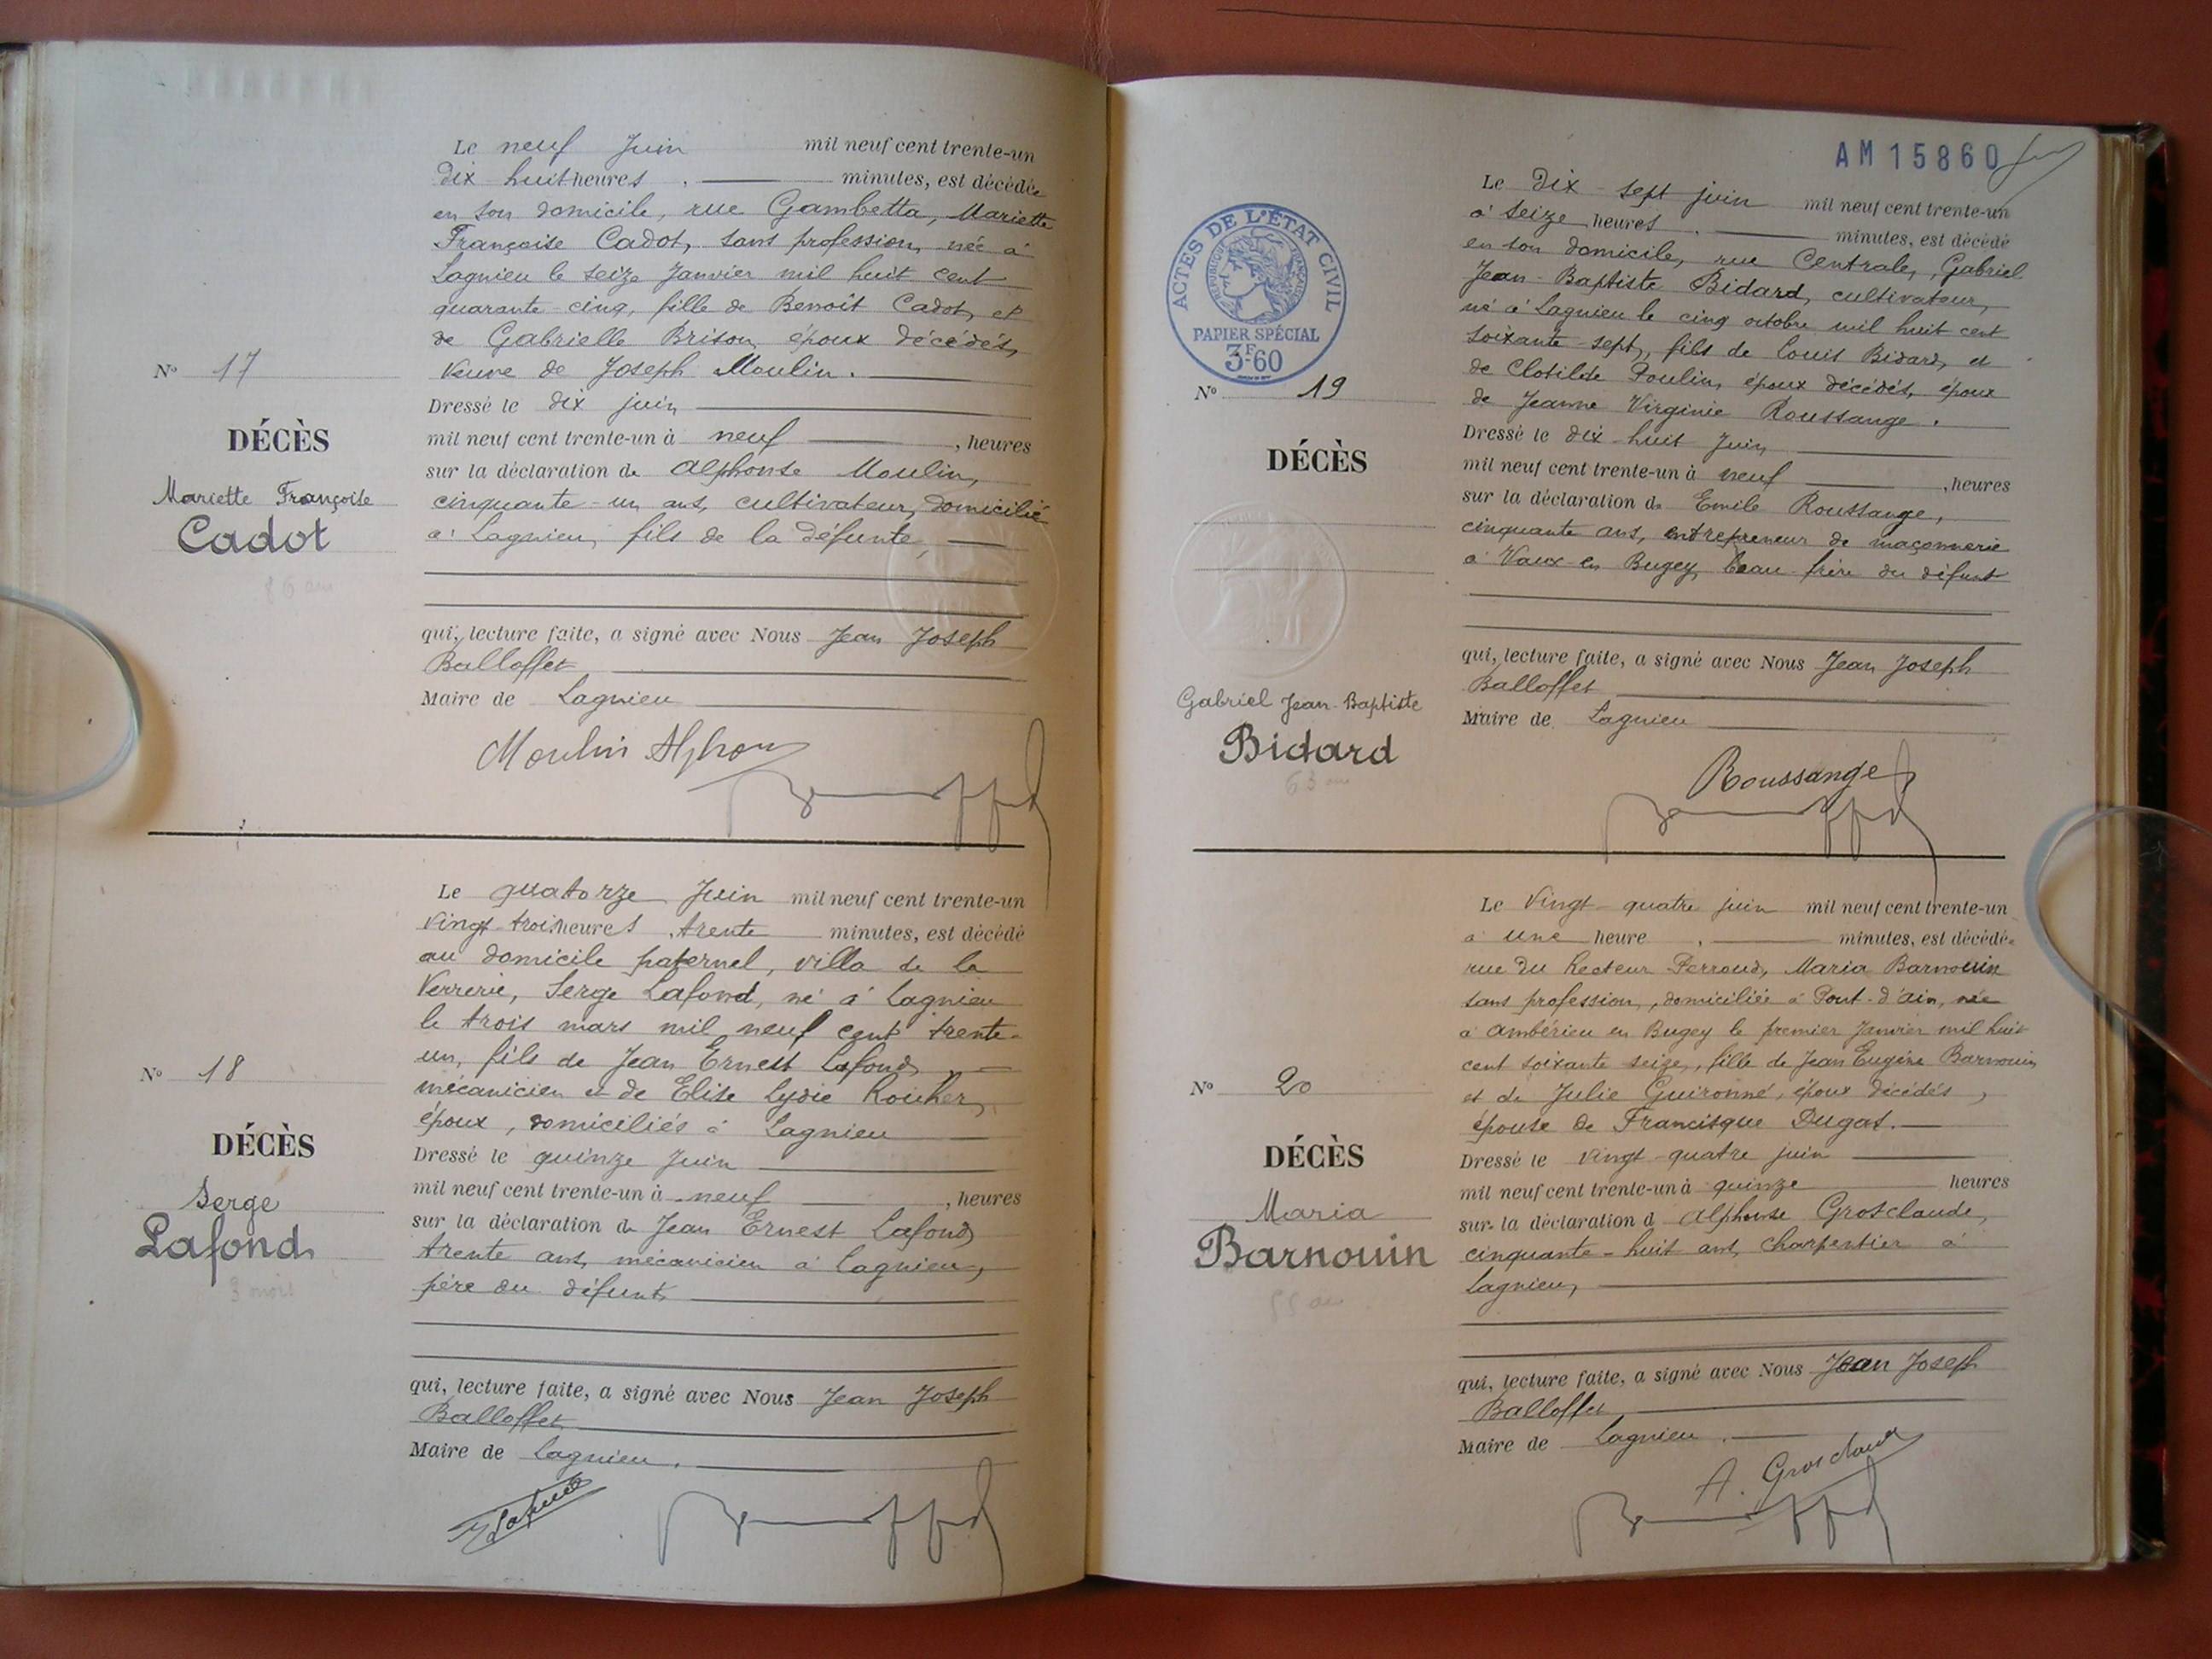 Le neuf Juin mil neuf cent trente-un
Dix huit heures, minutes, est décédée
en son domicile, rue Gambetta, Mariette
Françoise Cadot, sans profession, née à
Lagnieu le seize Janvier mil huit cent
quarante cinq, fille de Benoît Cadot, et
de Gabrielle Brison, époux décédés,
Veuve de Joseph Moulin.
Nº 17
Dressé le dix juin
DÉCÈS
mil neuf cent trente-un à neuf, heures
sur la déclaration de Alphonse Moulin,
Mariette Françoise
Cadot
86 ans
cinquante-un ans, cultivateur, domicilié
à Lagnieu, fils de la défunte,
qui, lecture faite, a signé avec Nous Jean Joseph
Balloffet
Maire de Lagnieu
Moulin Alphon
Le quatorze Juin mil neuf cent trente-un
Vingt-trois heures, trente minutes, est décédé
au domicile paternel, villa de la
Verrerie, Serge Lafond, né à Lagnieu
le trois mars mil neuf cent trente-
un, fils de Jean Ernest Lafond,
Nº 18
mécanicien et de Elise Lydie Roucher,
époux, domiciliés à Lagnieu
DÉCÈS
Dressé le quinze Juin
mil neuf cent trente-un à neuf, heures
Serge
Lafond
3 mois
sur la déclaration de Jean Ernest Lafond,
trente ans, mécanicien à Lagnieu,
père du défunt
qui, lecture faite, a signé avec Nous Jean Joseph
Balloffet
Maire de Lagnieu.
Lafond
AM 15860
ACTES DE L'ÉTAT CIVIL
RÉPUBLIQUE FRANÇAISE
PAPIER SPÉCIAL
3F60
Le Dix-sept juin mil neuf cent trente-un
à seize heures, minutes, est décédé
en son domicile, rue Centrale, Gabriel
Jean-Baptiste Bidard, cultivateur,
né à Lagnieu le cinq octobre mil huit cent
soixante-sept, fils de Louis Bidard, et
de Clotilde Poulin, époux décédés, époux
de Jeanne Virginie Roussange.
Nº 19
DÉCÈS
Dressé le dix-huit Juin
mil neuf cent trente-un à neuf, heures
sur la déclaration de Emile Roussange,
cinquante ans, entrepreneur de maçonnerie
à Vaux en Bugey, beau-frère du défunt
qui, lecture faite, a signé avec Nous Jean Joseph
Balloffet
Maire de Lagnieu
Gabriel Jean-Baptiste
Bidard
63 ans
Roussange
Le Vingt-quatre juin mil neuf cent trente-un
à une heure, minutes, est décédée
rue du Recteur Perroud, Maria Barnouin
sans profession, domiciliée à Pont-d'Ain, née
à Ambérieu en Bugey le premier Janvier mil huit
cent soixante seize, fille de Jean Eugène Barnouin
et de Julie Guironné, époux décédés,
épouse de Francisque Dugas.
Nº 20
DÉCÈS
Dressé le vingt-quatre juin
mil neuf cent trente-un à quinze heures
Maria
Barnouin
55 ans
sur la déclaration d Alphonse Grosclaude,
cinquante-huit ans, charpentier à
Lagnieu,
qui, lecture faite, a signé avec Nous Jean Joseph
Balloffet
Maire de Lagnieu.
A. Grosclaude